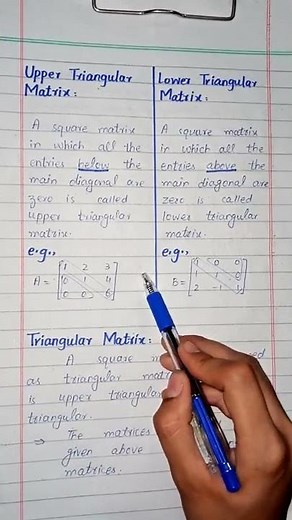 Upper Triangular
Matrix:
A square matrix
in which all the
entries below the
main diagonal are
zero is called
upper triangular
matrix.
e.g.,
A = [1 2 3
0 1 4
0 0 6]
Lower Triangular
Matrix:
A square matrix
in which all the
entries above the
main diagonal are
zero is called
lower triangular
matrix.
e.g.,
B = [4 0 0
1 1 0
2 -1 1]
Triangular Matrix:
A square
as triangular
is upper triangular
triangular.
⇒ The matrices
given above
matrices.